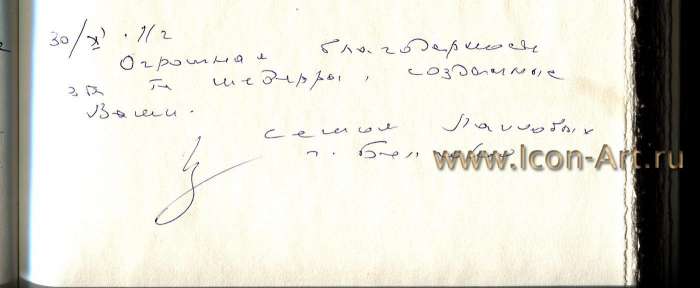 30/XI. 11г
Огромная благодарность
за те шедевры, созданные
Вами.
семья
г.
www.Icon-Art.ru